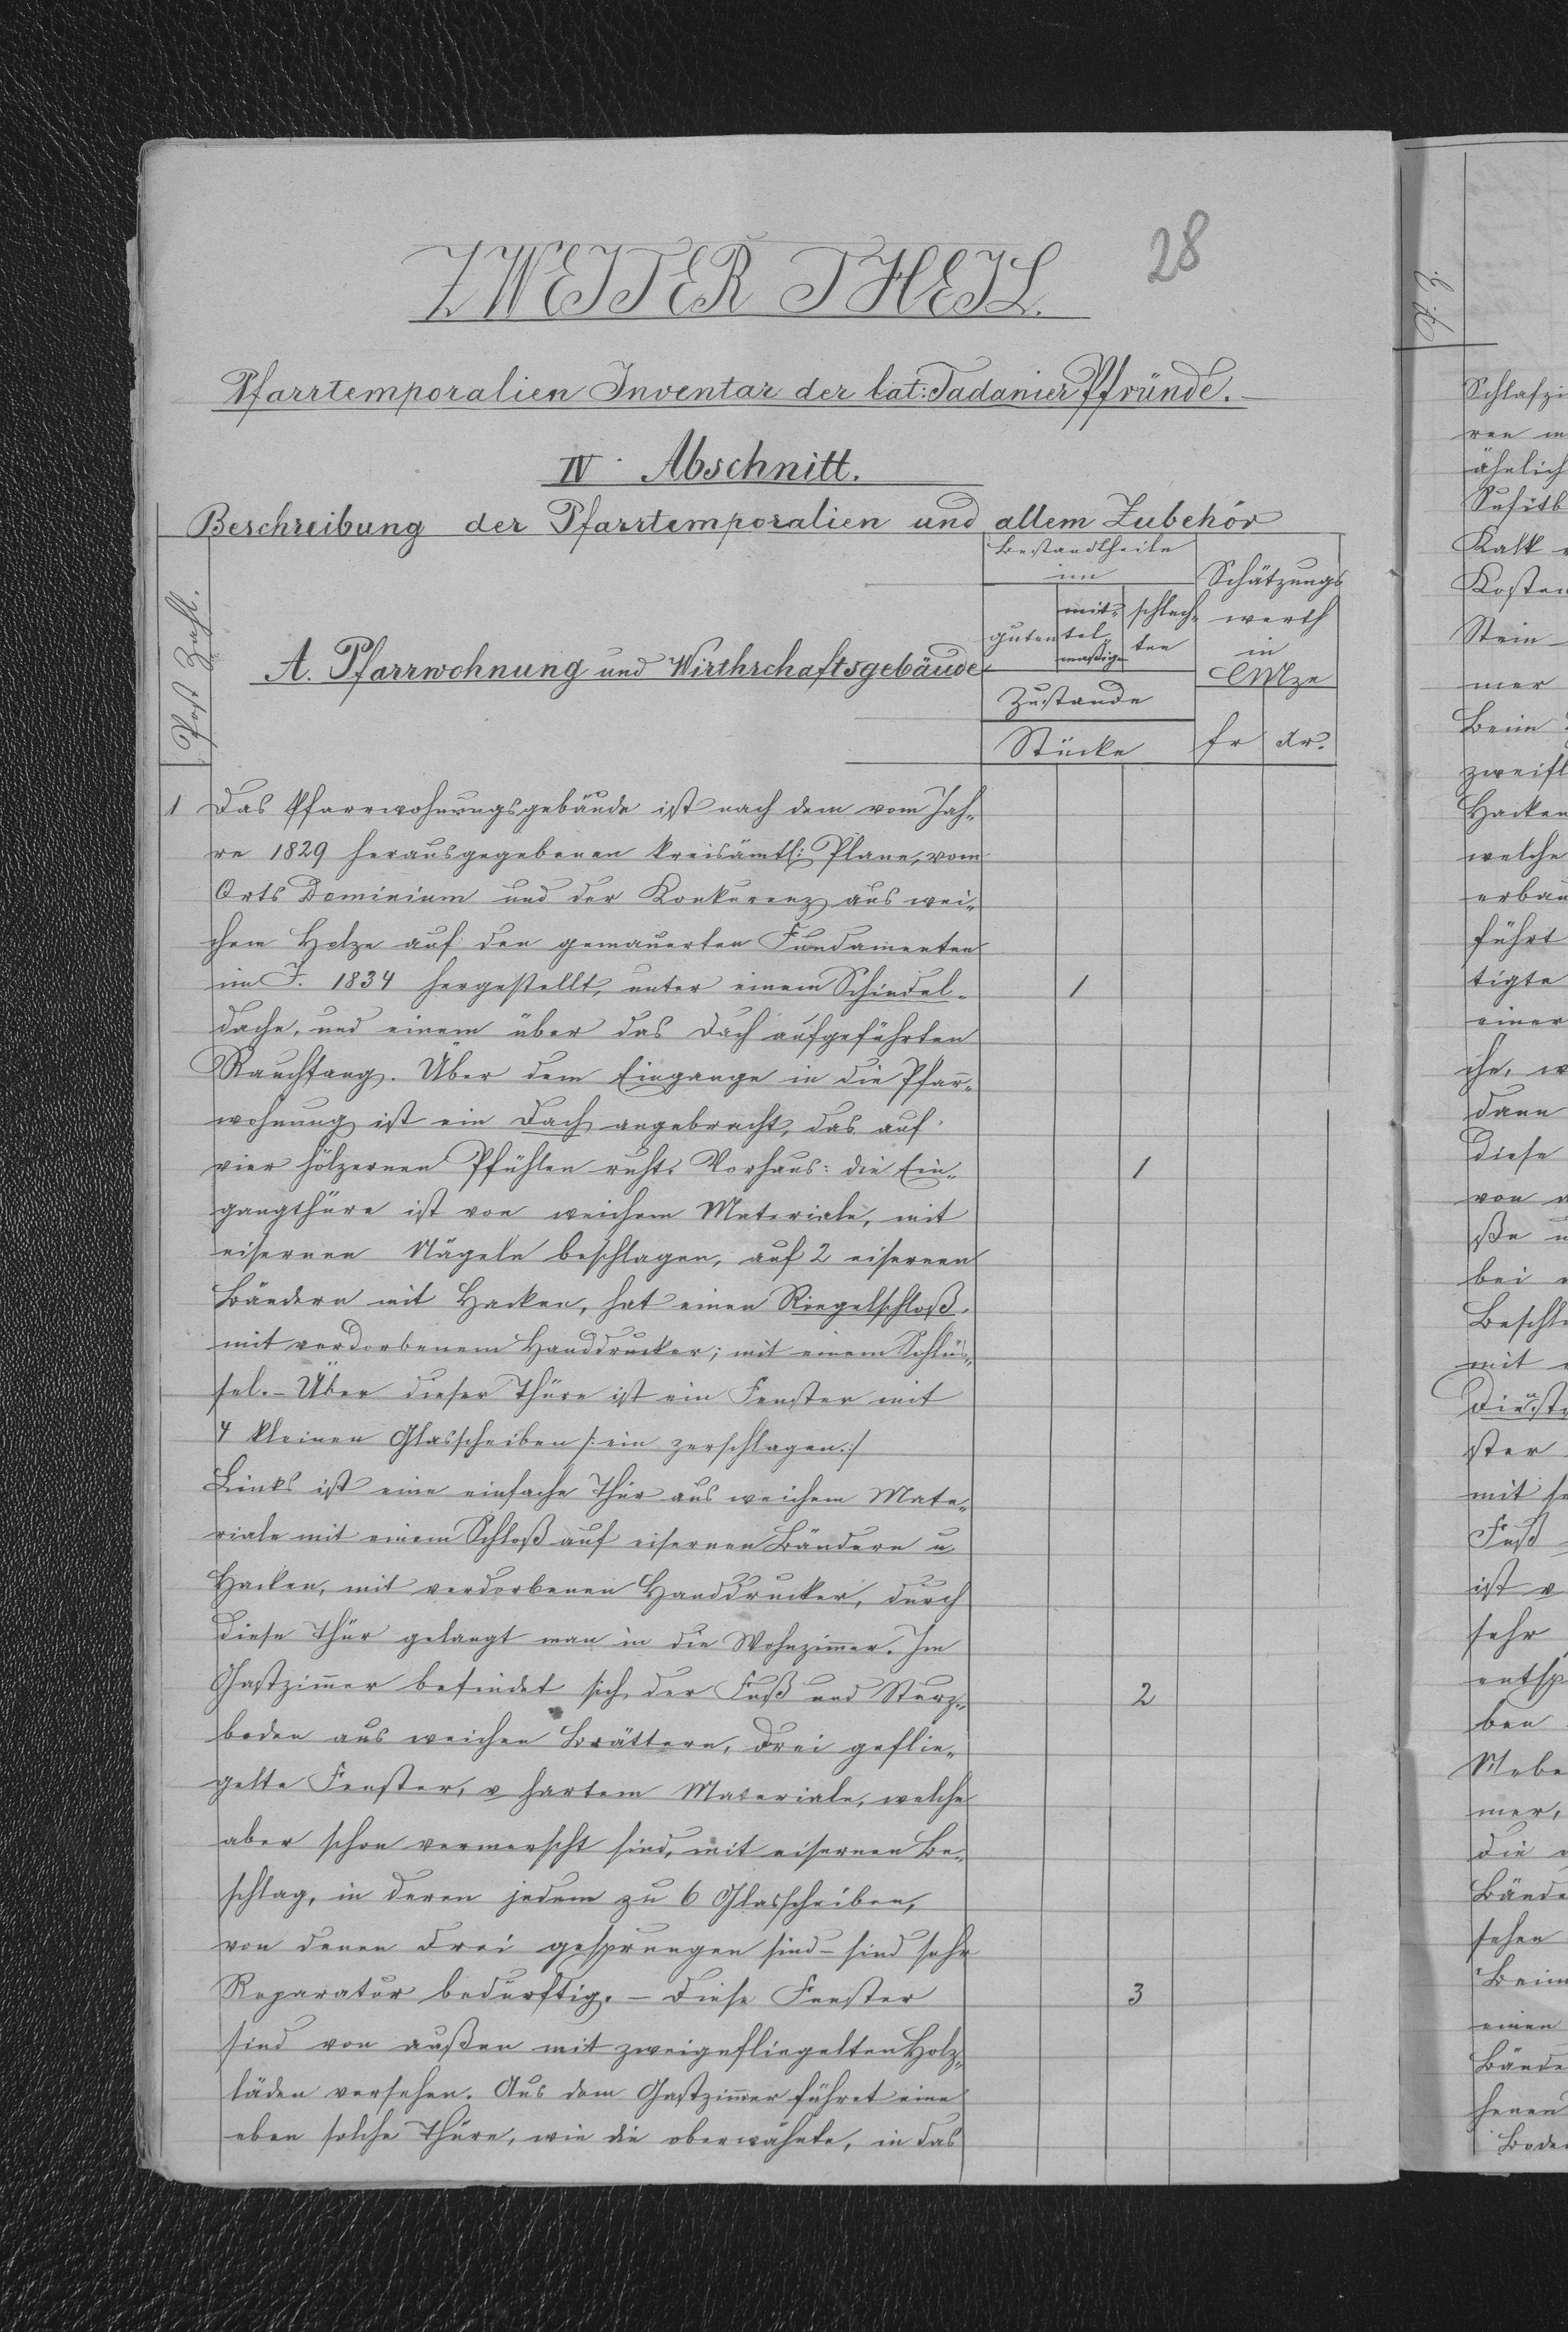 28
ZWEITER THEIL.
Pfarrtemporalien Inventar der lat: Tadanier Pfründe.
IV. Abschnitt.
Beschreibung der Pfarrtemporalien und allem Zubehör
Post Zahl.
A. Pfarrwohnung und Wirthrchaftsgebäude
Bestandtheile
im
guten
mit-
tel-
maßige
schlech-
ten
Zustande
Stücke
Schätzungs
werth
in
CMze
fr
xr.
1 Das Pfarrwohnungsgebäude ist nach dem vom Jah-
re 1829 herausgegebenen kreisämtl: Plane, vom
Orts Dominium und der Konkurenz aus wei-
chem Holze auf den gemauerten Fundamenten
im J. 1834 hergestellt, unter einem Schindel- 1
dache, und einem über das Dach aufgeführten
Rauchfang. Über dem Eingange in die Pfarr-
wohnung ist ein Dach angebracht, das auf
vier hölzernen Pfühlen ruht. Vorhaus: die Ein- 1
gangthüre ist von weichem Materiale, mit
eisernen Nägeln beschlagen, auf 2 eisernen
Bändern mit Hacken, hat einen Riegelschloß,
mit verdorbenem Handdrucker; mit einem Schlüs-
sel. – Über dieser Thüre ist ein Fenster mit
4 kleinen Glasscheiben /: ein zerschlagen :/
Links ist eine einfache Thür aus weichem Mate-
riale mit einem Schloß auf eisernen Bändern u
Hacken, mit verdorbenen Handdrucker, durch
diese Thür gelangt man in die Wohnzimer. Im
Gastzimer befindet sich der Fuß und Sturz- 2
boden aus weichen Brättern, drei geflie-
gelte Fenster, v hartem Materiale, welche
aber schon vermorscht sind, mit eisernen Be-
schlag, in deren jedem zu 6 Glasscheiben,
von denen drei gesprungen sind – sind sehr
Reparatur bedürftig. – Diese Fenster 3
sind von außen mit zweigefliegelten Holz-
läden versehen. Aus dem Gastzimer führet eine
eben solche Thüre, wie die oberwähnte, in das
Schlafzi
ren
ähnlich
Kalk
Kosten
Stein
mer
Beim
zweifl
Hacken
welche
erbau
führt
tigte
einer
che, w
dann
Diese
von
bei
Beschl
mit
Dienst
ster
mit
Fuß
ist v
sehr
entsp
ben
Nebe
mer,
die
Bände
sehen
Beim
einen
Bände
henen
Boden